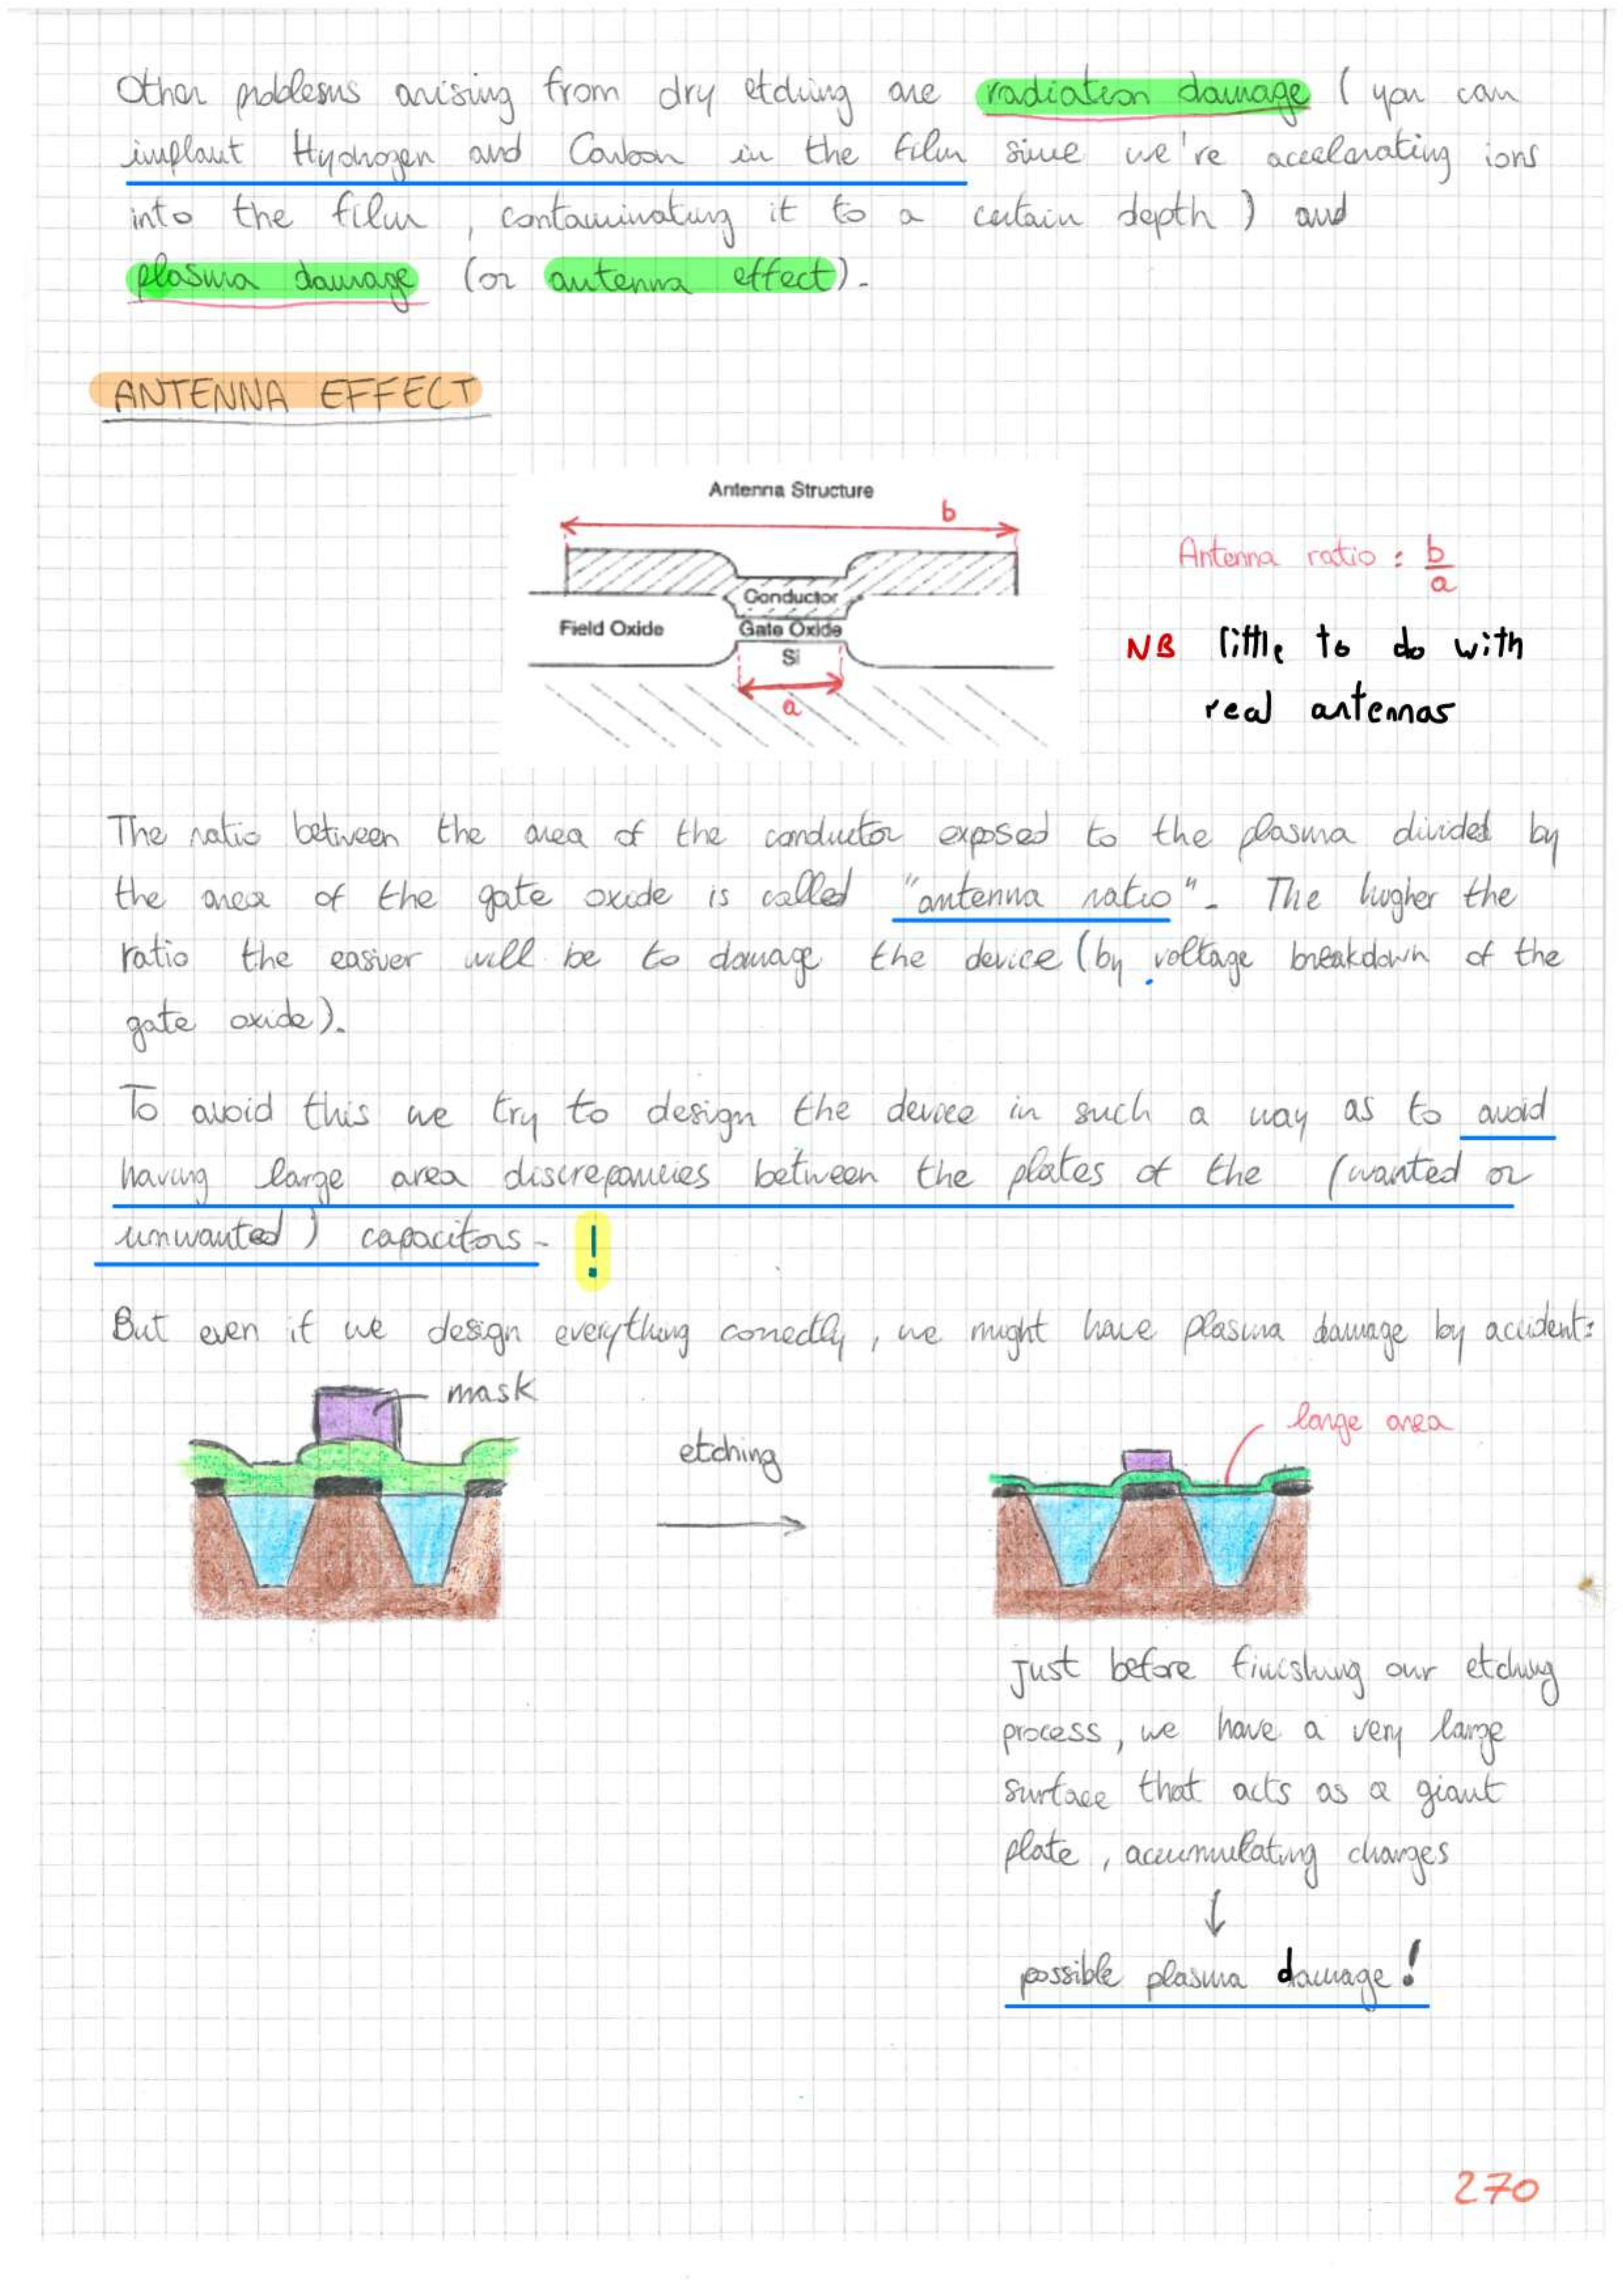 Other problems arising from dry etching are radiation damage ( you can
implant Hydrogen and Carbon in the film since we're accelerating ions
into the film , contaminating it to a certain depth ) and
plasma damage (or antenna effect).
ANTENNA EFFECT
Antenna Structure
b
Conductor
Field Oxide
Gate Oxide
Si
a
Antenna ratio : b/a
NB little to do with
real antennas
The ratio between the area of the conductor exposed to the plasma divided by
the area of the gate oxide is called "antenna ratio". The higher the
ratio the easier will be to damage the device (by voltage breakdown of the
gate oxide).
To avoid this we try to design the device in such a way as to avoid
having large area discrepancies between the plates of the (wanted or
unwanted ) capacitors. !
But even if we design everything correctly, we might have plasma damage by accident:
mask
etching
large area
just before finishing our etching
process, we have a very large
surface that acts as a giant
plate, accumulating charges
↓
possible plasma damage!
270